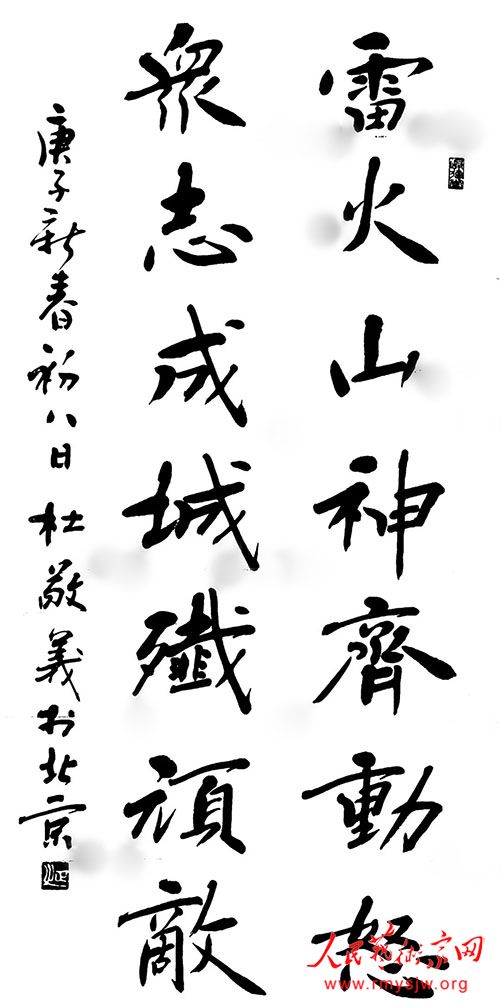 雷火山神齊動怒
眾志成城殲頑敵
庚子新春初八日 杜敬義於北京
人民藝術家网
www.rmysjw.org